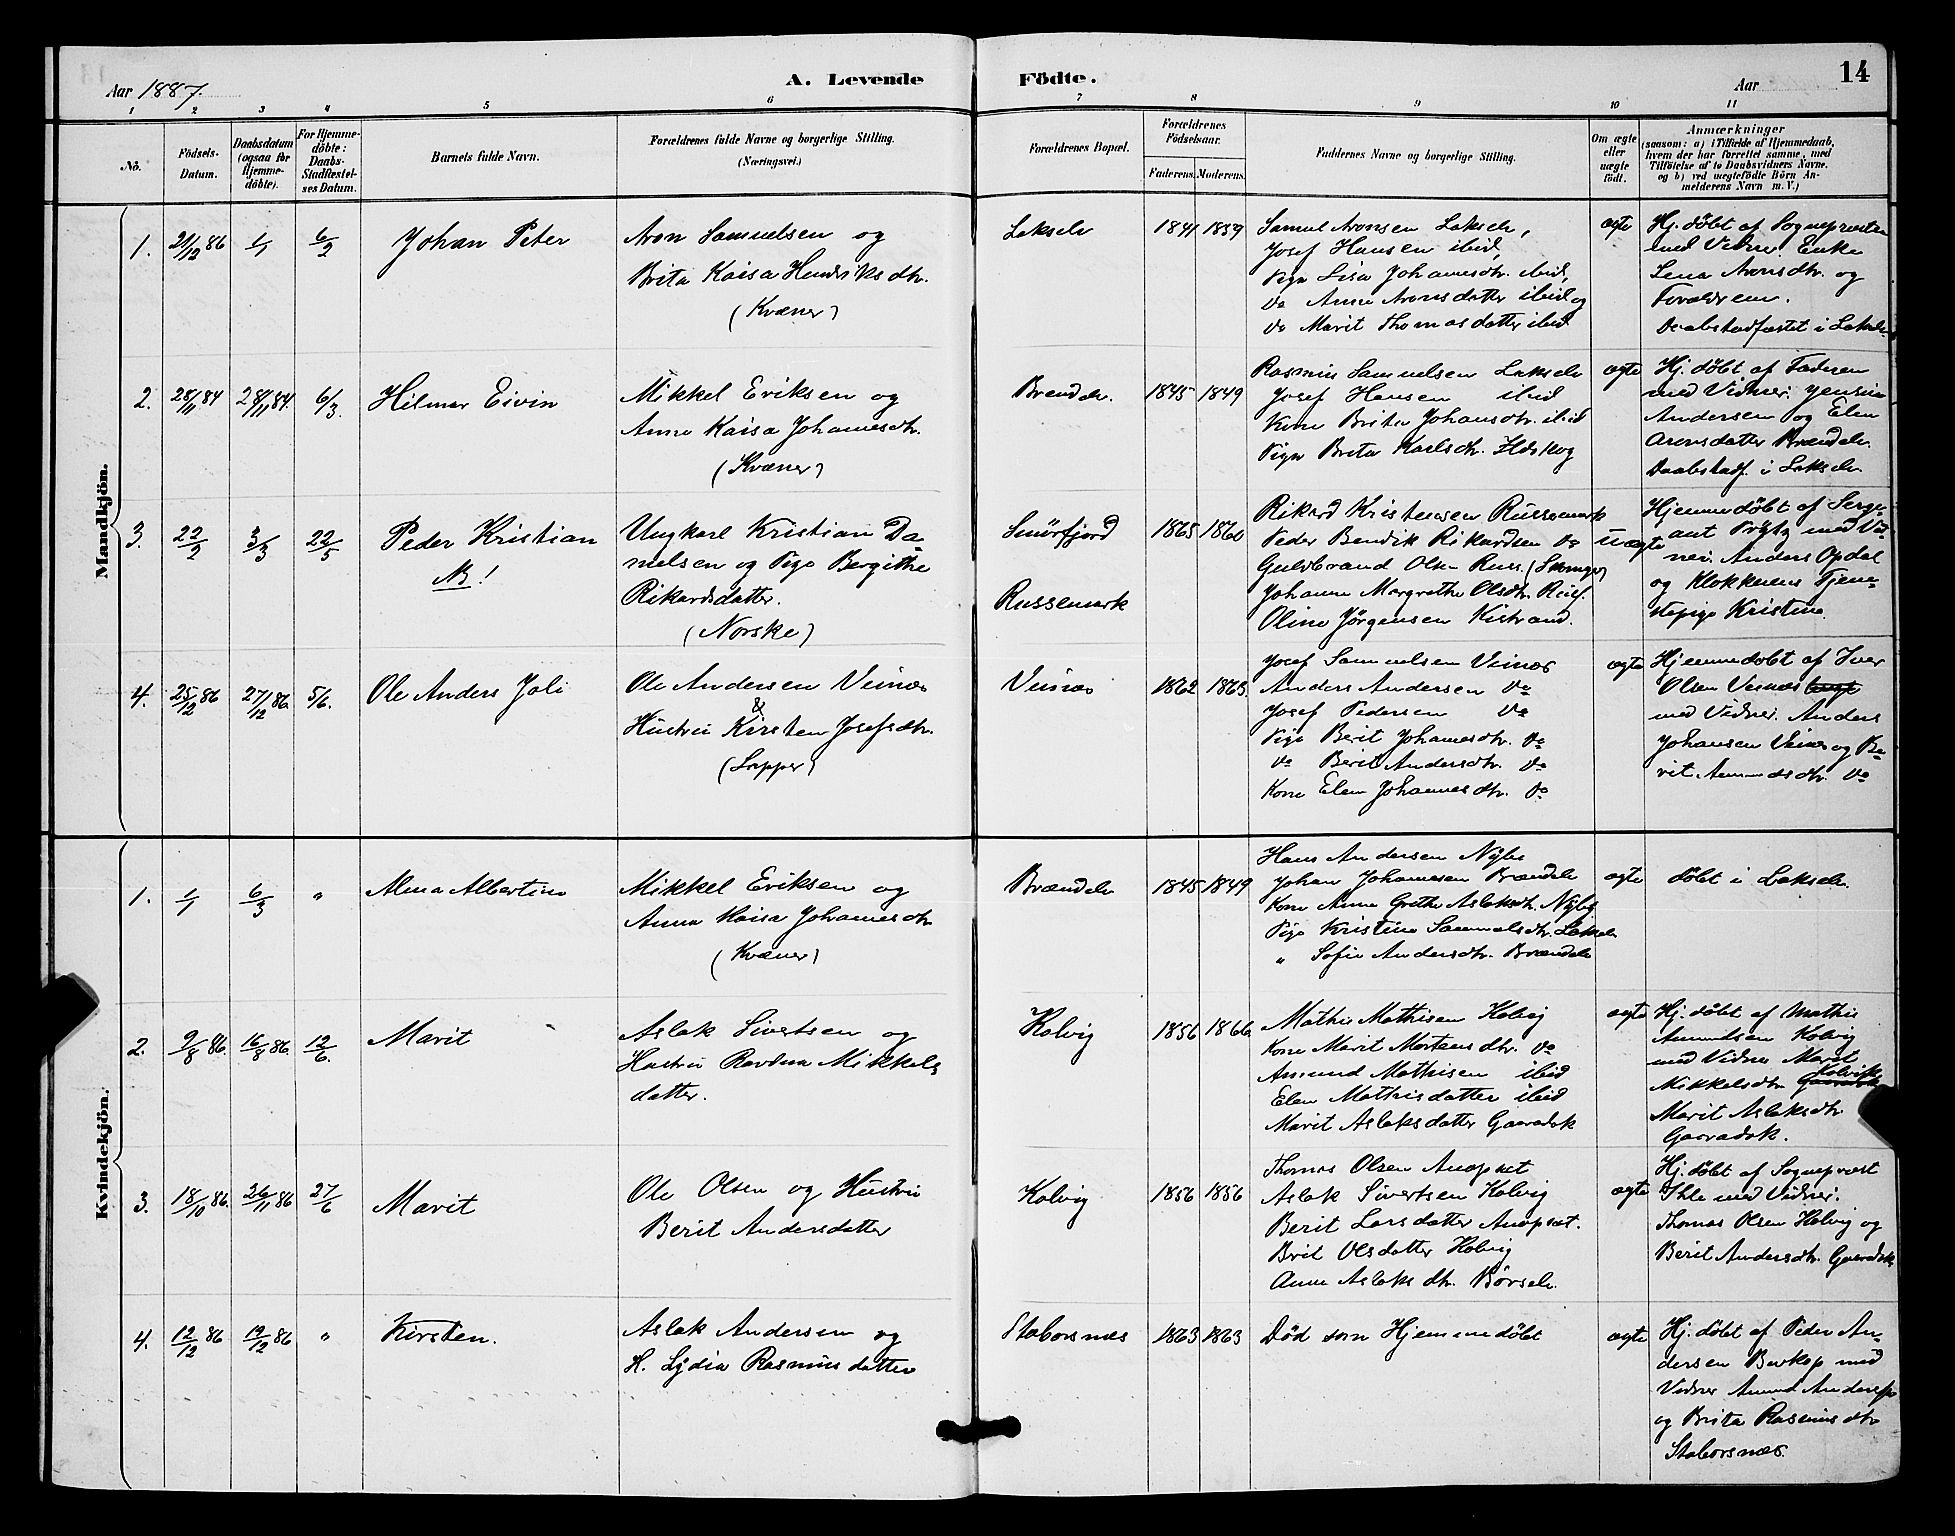 14
Aar 1887.
A. Levende
Födte.
Aar
1 2 3 4 5 6 7 8 9 10 11
No.
Födsels-
Datum.
Daabsdatum
(ogsaa for
Hjemme-
döbte).
For Hjemme-
döbte:
Daabs-
Stadfæstel-
ses Datum.
Barnets fulde Navn.
Forældrenes fulde Navne og borgerlige Stilling.
(Næringsvei.)
Forældrenes Bopæl.
Forældrenes
Födselsaar.
Faderens. Moderens.
Faddernes Navne og borgerlige Stilling.
Om ægte
eller
uægte
födt.
Anmærkninger
(saasom: a) i Tilfælde af Hjemmedaab,
hvem der har forrettet samme, med
Tilföielse af to Daabsvidners Navne.
og b) ved uægtefödte Börn An-
melderens Navn m. V.)
Mandkjön.
1. 21/12 86 1/1 6/2 Johan Peter
Aron Samuelsen og
Brita Kaisa Hendriksdtr.
(Kvæner)
Lakselv 1841 1859
Samul Aronsen Lakselv,
Josef Hansen ibid,
Pige Lisa Johannesdtr. ibid,
do Anna Aronsdatter ibid og
do Marit Thomasdatter ibid
ægte
Hj. döbt af Sognepræsten
med Vidner: Enke
Lena Aronsdtr. og
Forældrene.
Daabstadfæstet i Lakselv
2. 28/11 84 28/11 84. 6/3. Hilmar Eivin
Mikkel Eriksen og
Anna Kaisa Johannesdtr.
(Kvæner)
Brændelv. 1845 1849
Rasmus Samuelsen Lakselv
Josef Hansen ibid
Kone Brita Johansdtr. ibid
Pige Brita Karlsdtr. Ildskog
ægte
Hj. döbt af Faderen
med Vidner: Jensine
Andersen og Elen
Aronsdatter Brændelv.
Daabstadf. i Lakselv.
3. 22/2 3/3 22/5 Peder Kristian
NB!
Ungkarl Kristian Da-
nielsen og Pige Bergithe
Rikardsdatter.
(Norske)
Smörfjord
Russemark
1865 1860
Rikard Kristensen Russemark
Peder Bendik Rikardsen do
Guldbrand Olsen Russ.
Johanna Margrethe Olsdtr.
Oline Jørgensen Kistrand.
uægte
Hjemmedöbt af Serge-
ant med Vid-
ner: Anders Opdal
og Klokkerens Tjene-
stepige Kristine
4. 25/12 86 27/12 86. 5/6. Ole Anders Joli
Ole Andersen Veinæs
&
Hustru Kirsten Josefsdtr.
(Lapper)
Veinæs 1862 1863.
Josef Samuelsen Veinæs
Anders Andersen do
Josef Pedersen do
Pige Berit Johannesdtr. do
do Berit Andersdtr. do
Kone Elen Johannesdtr. do
ægte
Hjemmedöbt af Iver
Olsen Veinæs
med Vidner: Anders
Johansen Veines og Be-
rit Amundsdtr. do
Kvindekjön.
1. 1/1 6/3 " Alma Albertine
Mikkel Eriksen og
Anna Kaisa Johannesdtr
(Kvæner)
Brændelv 1845 1849
Hans Andersen Nÿby
Johan Johannesen Brændelv
Kone Anna Grethe Aslaksdtr. Nÿby
Pige Kristine Sammelsdtr. Lakselv
" Sofie Andersdtr. Brændelv
ægte
döbt i Lakselv.
2. 9/8 86. 16/8 86. 12/6. Marit
Aslak Sivertsen og
Hustru Ravdna Mikkels
datter.
Kolvig 1856 1866
Mathis Mathisen Kolvig
Kone Marit Mortensdtr. do
Amund Mathisen ibid
Elen Mathisdatter ibid
Marit Aslaksdatter Gaaradak
ægte
Hj. döbt af Mathis
Amundsen Kolvig
med Vidner Marit
Mikkelsdtr. Kolvik
Marit Aslaksdtr
Gaaradak.
3. 18/10 86. 26/11 86 27/6 Marit
Ole Olsen og Hustru
Berit Andersdatter
Kolvig 1856 1856
Thomas Olsen Anopset
Aslak Sivertsen Kolvig
Berit Larsdatter Anopset.
Brit Olsdatter Kolvig
Anne Aslaksdtr. Börselv.
ægte
Hj. döbt af Sogneprest
Ihle med Vidner:
Thomas Olsen Kolvig og
Berit Andersdtr. Gaaradak
4. 12/12 86 19/12 86 " Kirsten.
Aslak Andersen og
H. Lÿdia Rasmusdatter
Staborsnæs 1863 1863
Död som Hjemmedöbt
ægte
Hj. döbt af Peder An-
dersen med
Vidner Amund Andersen
og Brita Rasmusdtr
Staborsnæs.